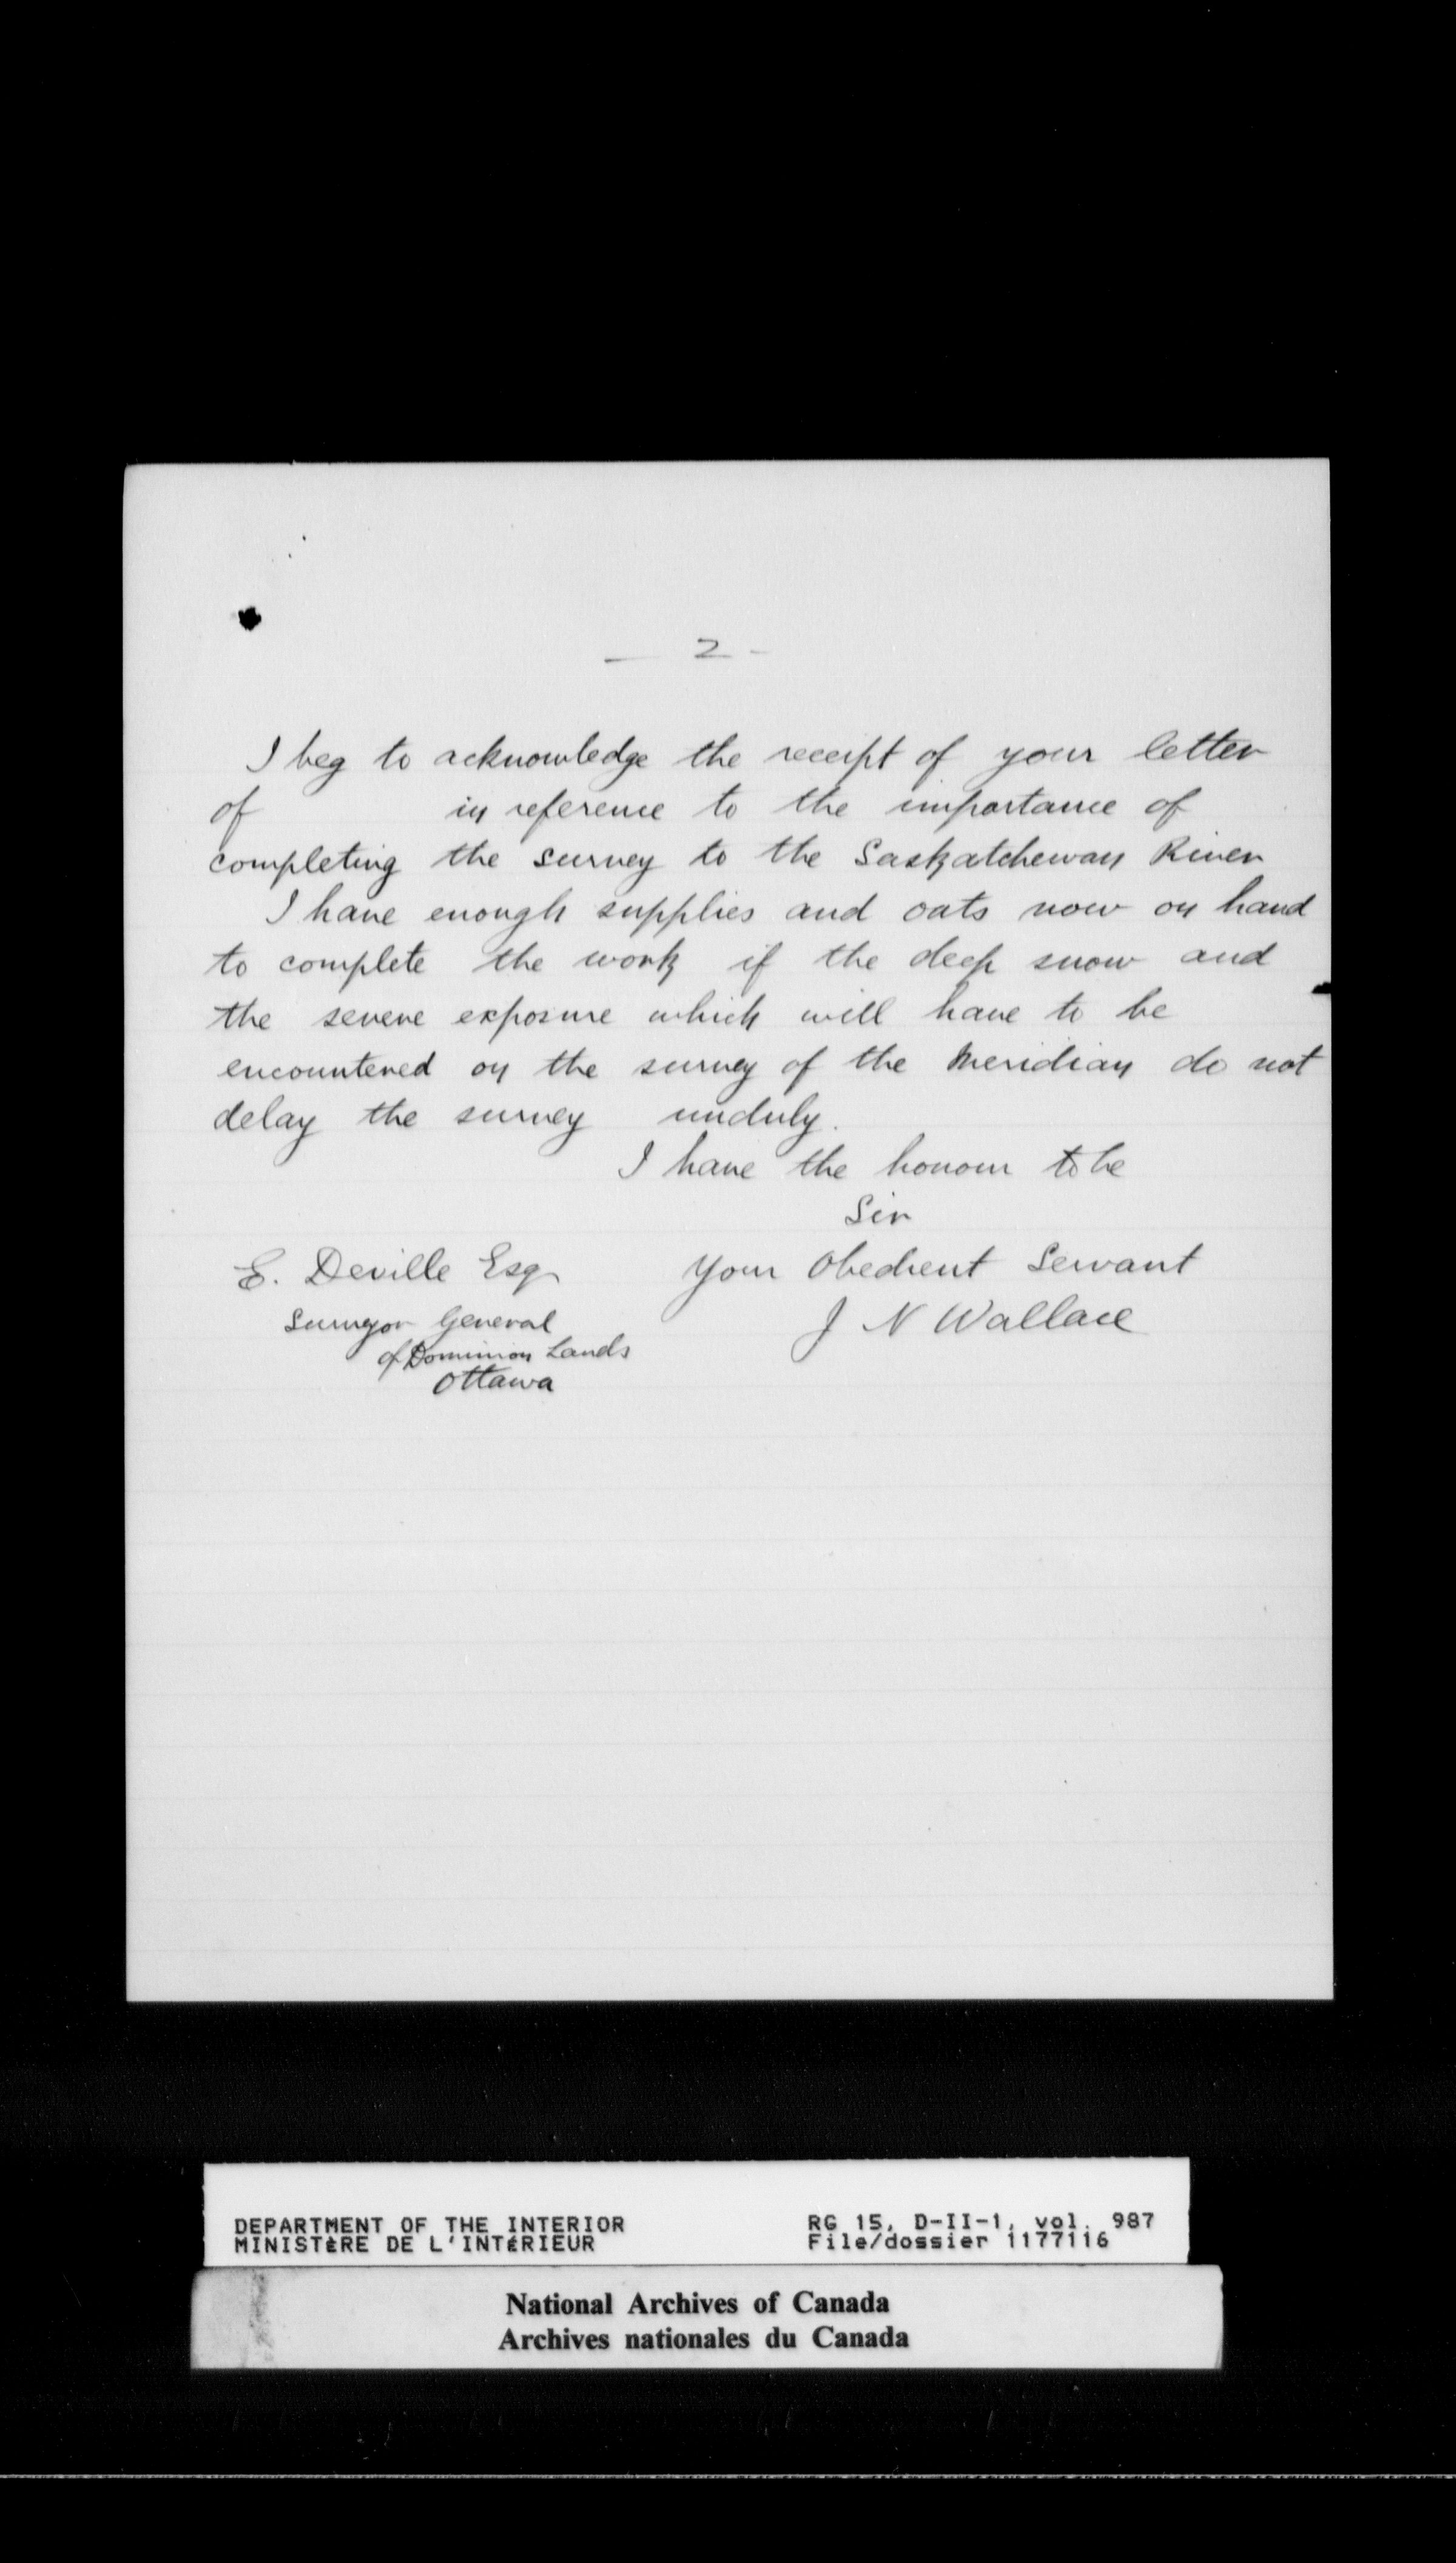 — 2 -
I beg to acknowledge the receipt of your letter
of in reference to the importance of
completing the survey to the Saskatchewan River
I have enough supplies and oats now on hand
to complete the work if the deep snow and
the severe exposure which will have to be
encountered on the survey of the Meridian do not
delay the survey unduly.
I have the honour to be
Sir
Your Obedient Servant
J N Wallace
E. Deville Esq
Surveyor General
of Dominion Lands
Ottawa
DEPARTMENT OF THE INTERIOR
MINISTÈRE DE L'INTÉRIEUR
RG 15, D-II-1, vol. 987
File/dossier 1177116
National Archives of Canada
Archives nationales du Canada